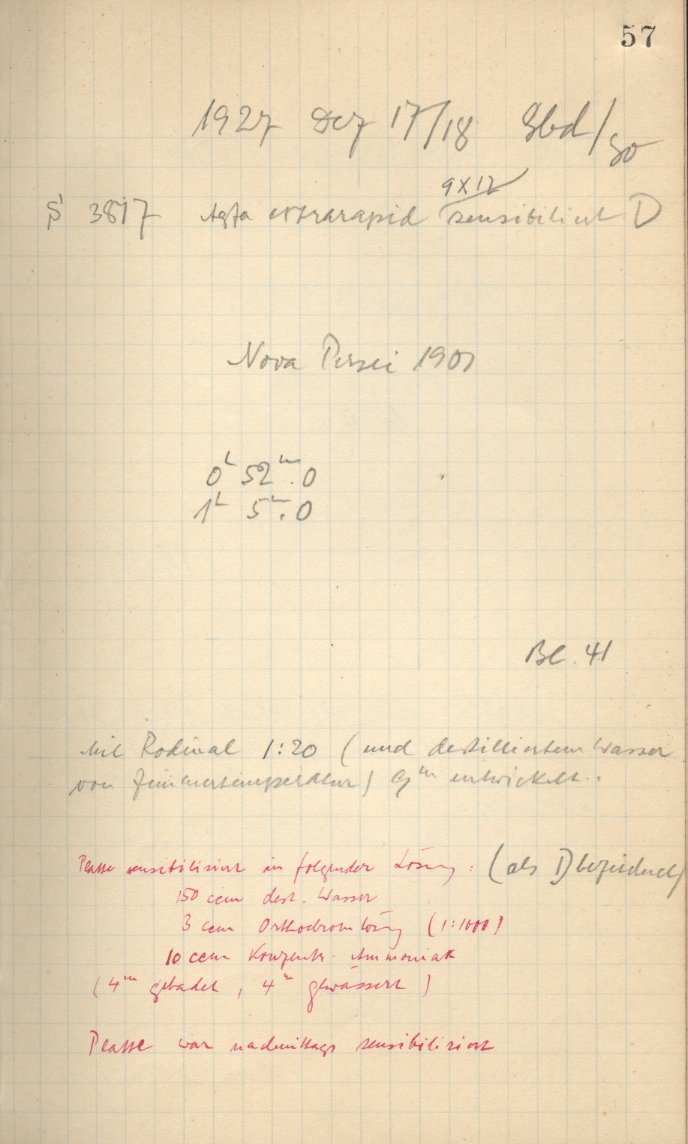 57
1927 Dez 17/18 Sbd/So
9x12
S 3817 Agfa extrarapid sensibilisiert D
Nova Persei 1901
0h 52m.0
1h 5m.0
Bl. 41
Mit Rodinal 1:20 (und destilliertem Wasser
von Zimmertemperatur) 9m entwickelt.
Platte sensibilisiert in folgender Lösung: (als D bezeichnet)
150 ccm dest. Wasser
3 ccm Orthochromlösung (1:1000)
10 ccm Konzentr. Ammoniak
(4m gebadet, 4m gewässert)
Platte war nachmittags sensibilisiert